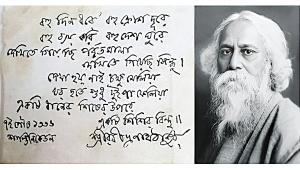 বহু দিন ধরে' বহু ক্রোশ দূরে
বহু ব্যয় করি বহু দেশ ঘুরে
দেখিতে গিয়েছি পর্বতমালা
দেখিতে গিয়েছি সিন্ধু।
দেখা হয় নাই চক্ষু মেলিয়া
ঘর হতে শুধু দুই পা ফেলিয়া
একটি ধানের শিষের উপরে
একটি শিশির বিন্দু॥
৭ই পৌষ ১৩৩৬
শান্তিনিকেতন
শ্রীরবীন্দ্রনাথ ঠাকুর